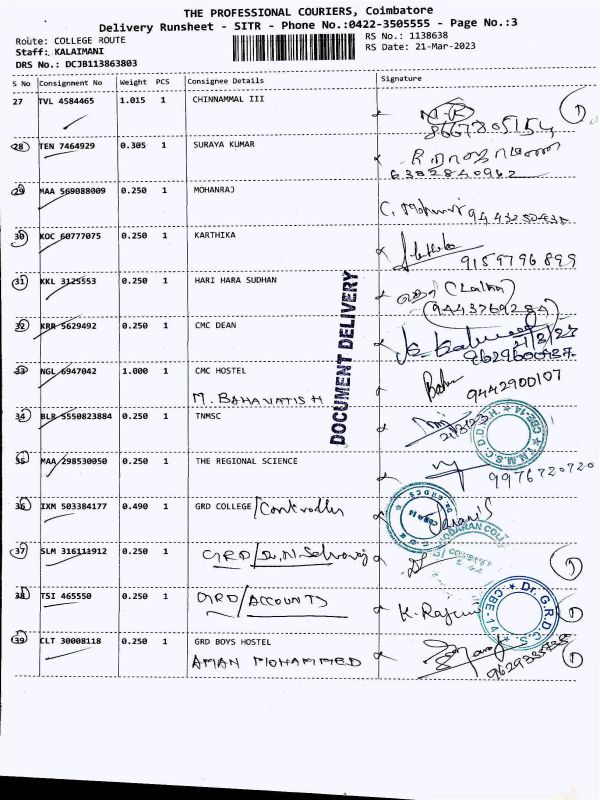 THE PROFESSIONAL COURIERS, Coimbatore
Delivery Runsheet - SITR - Phone No.:0422-3505555 - Page No.:3
Route: COLLEGE ROUTE
Staff: KALAIMANI
DRS No.: DCJB113863803
RS No.: 1138638
RS Date: 21-Mar-2023
S No Consignment No Weight PCS Consignee Details Signature
27 TVL 4584465 1.015 1 CHINNAMMAL III
28 TEN 7464929 0.305 1 SURAYA KUMAR
6382840962
29 MAA 569088009 0.250 1 MOHANRAJ
30 KOC 60777075 0.250 1 KARTHIKA
9159796899
31 KKL 3125553 0.250 1 HARI HARA SUDHAN
9443769284
32 KRR 5629492 0.250 1 CMC DEAN
33 NGL 6947042 1.000 1 CMC HOSTEL
9442900107
34 BLR 5550823884 0.250 1 TNMSC
35 MAA 298530050 0.250 1 THE REGIONAL SCIENCE
9976720720
36 IXM 503384177 0.490 1 GRD COLLEGE /Controller
37 SLM 316111912 0.250 1 GRD/Dr. N. Selvaraj
38 TSI 465550 0.250 1 GRD/ACCOUNTS
39 CLT 30008118 0.250 1 GRD BOYS HOSTEL
AMAN MOHAMMED
DOCUMENT DELIVERY